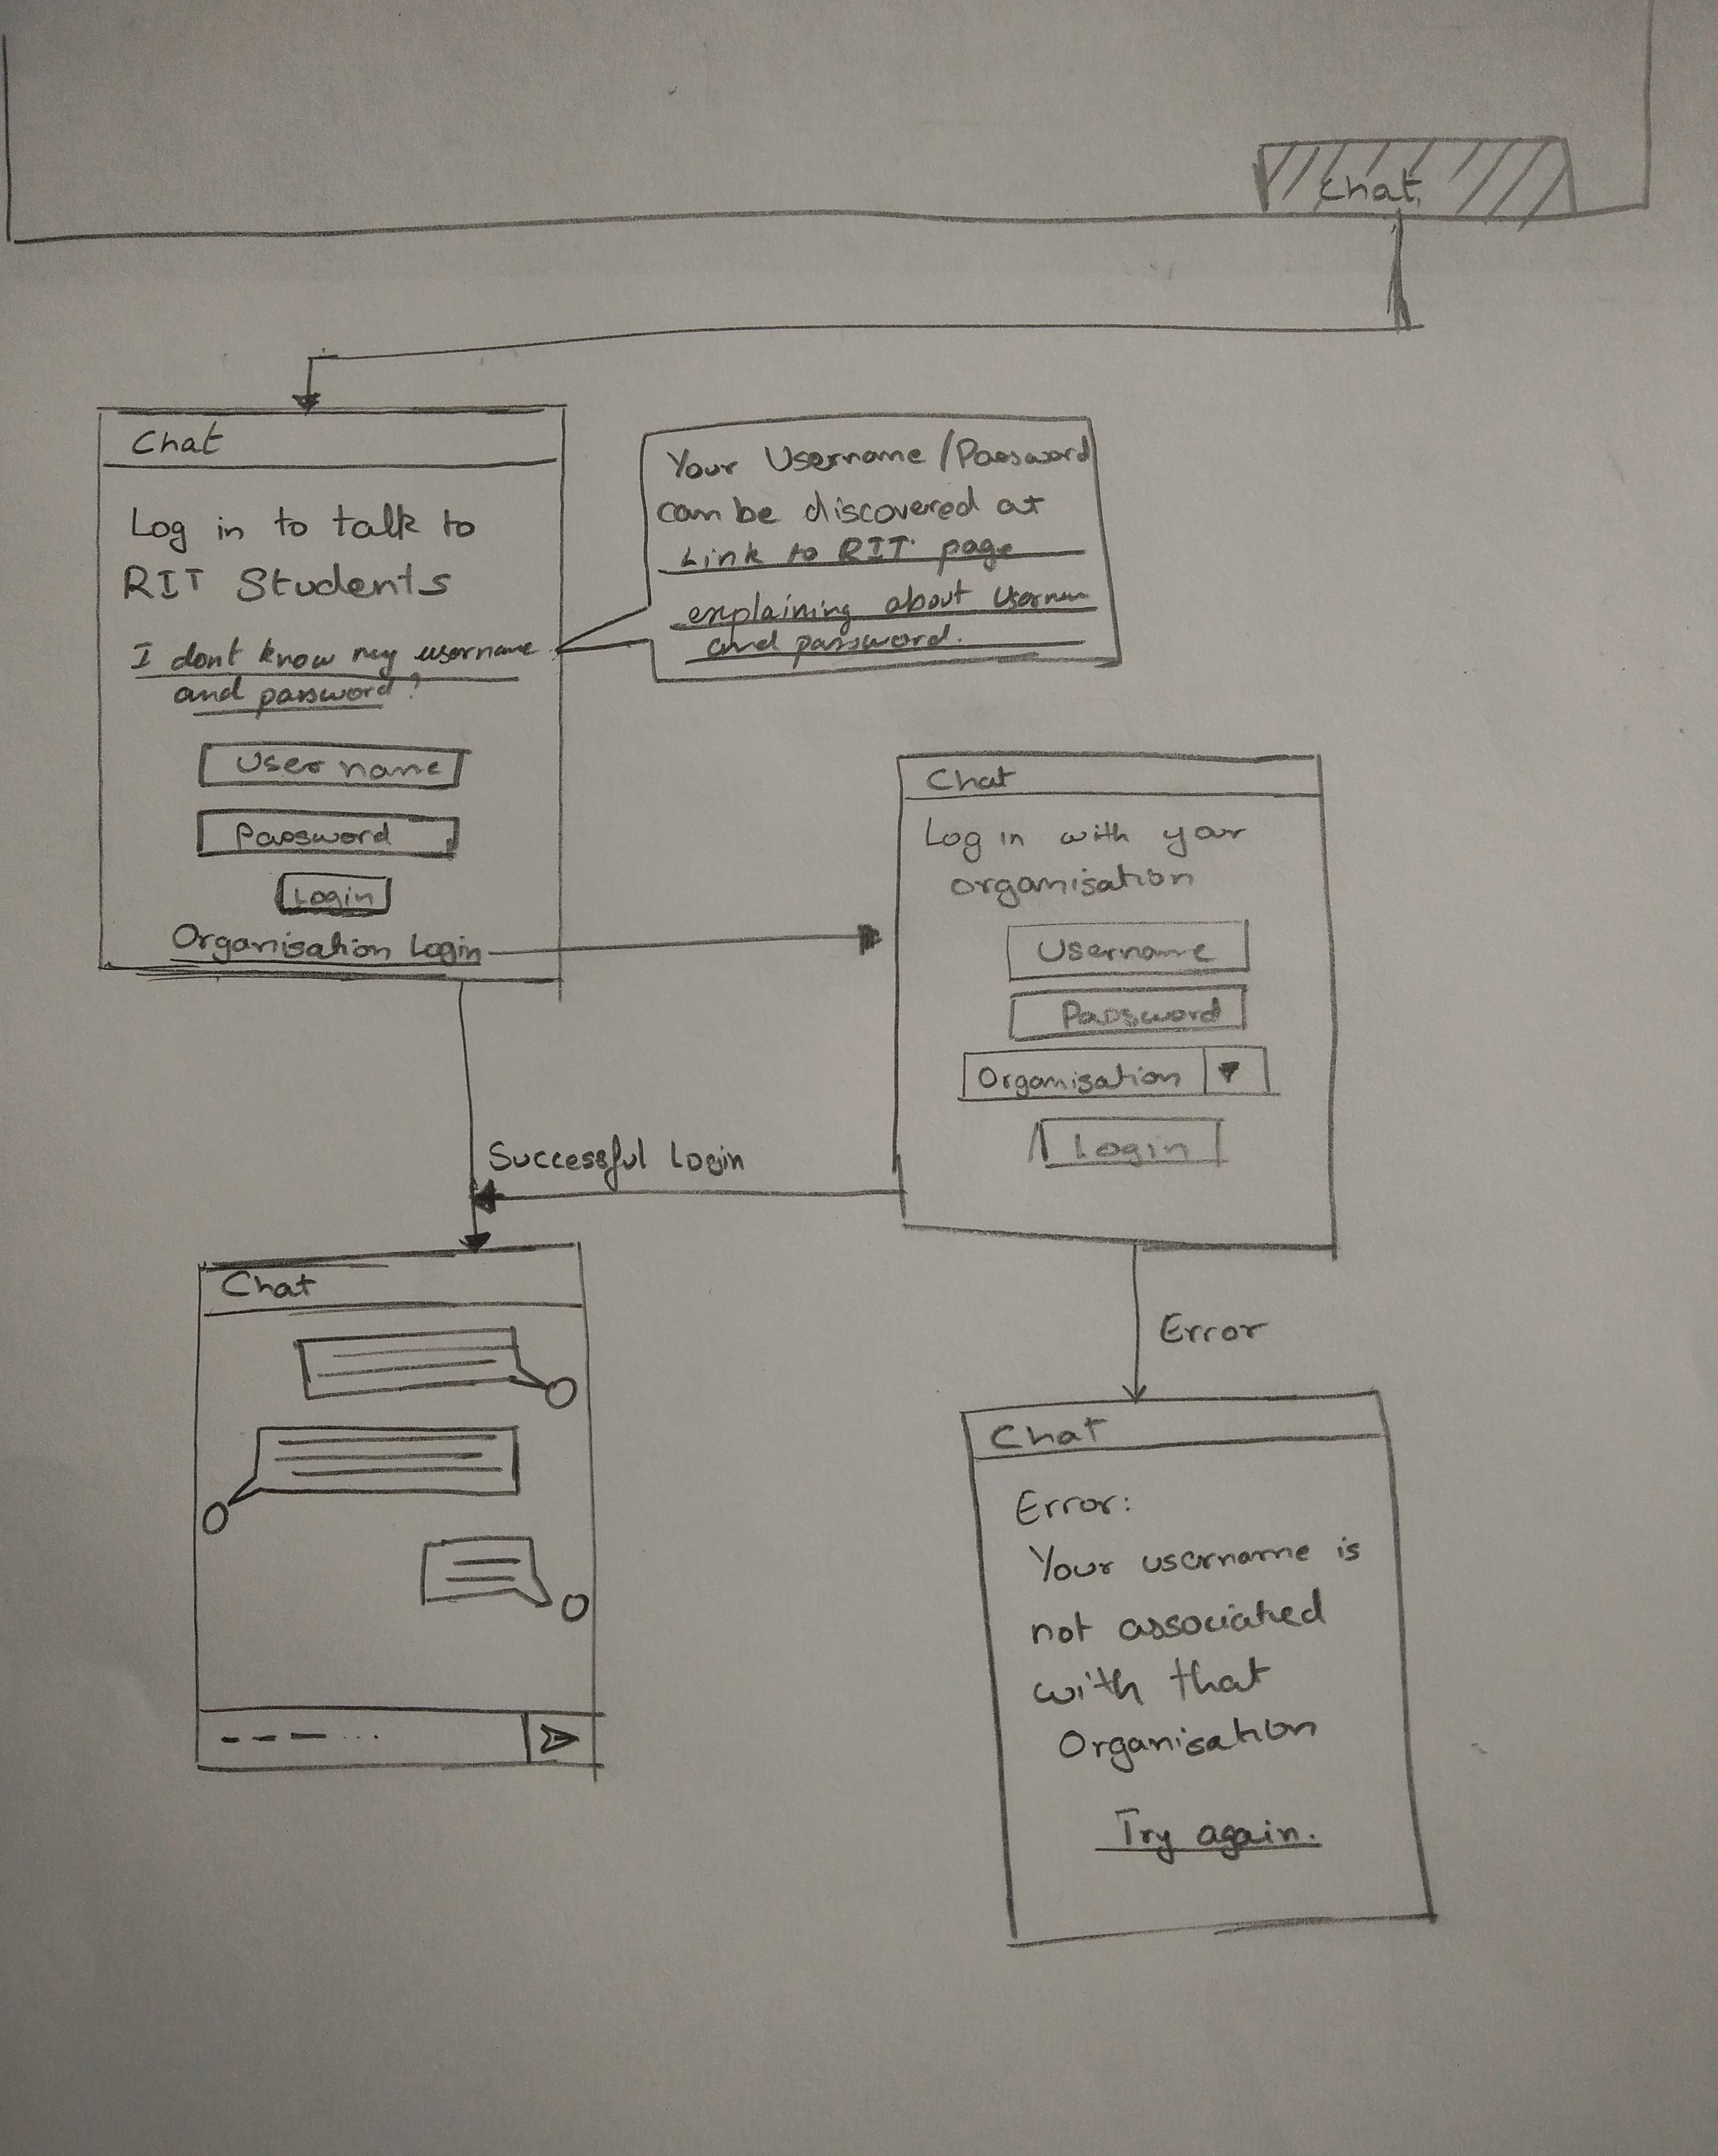 Chat
Chat
Log in to talk to
RIT Students
I dont know my username
and password?
User name
Password
Login
Organisation Login
Your Username/Password
can be discovered at
Link to RIT page
explaining about
and password.
Chat
Log in with your
organisation
Username
Password
Organisation
Login
Successful Login
Error
Chat
Chat
Error:
Your username is
not associated
with that
Organisation
Try again.